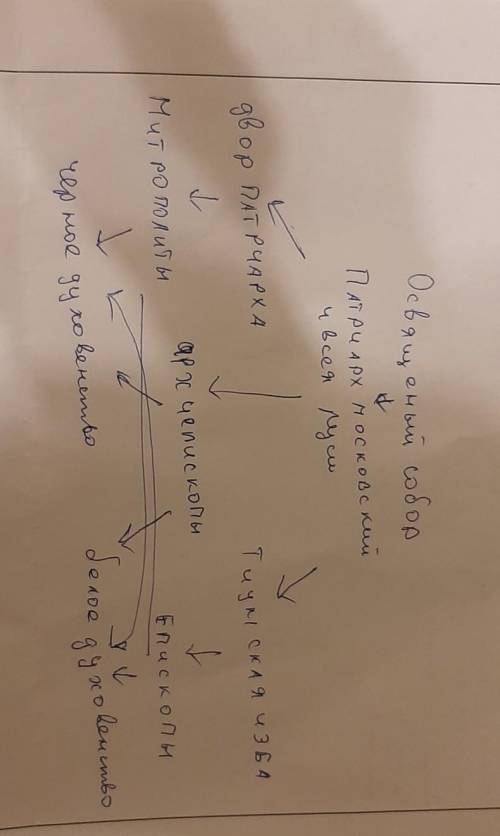 Освященый собор
Патриарх московский
и всея Руси
двор патриарха
Тиунская изба
Митрополиты
архиепископы
Епископы
черное духовенство
белое духовенство